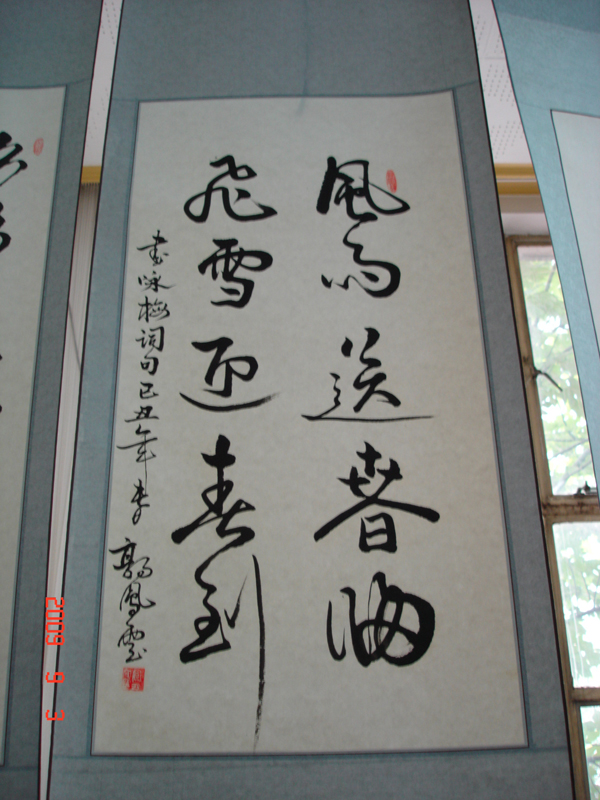 風雨送春歸
飛雪迎春到
書咏梅詞句己丑年
郭鳳雲
2009 9 3